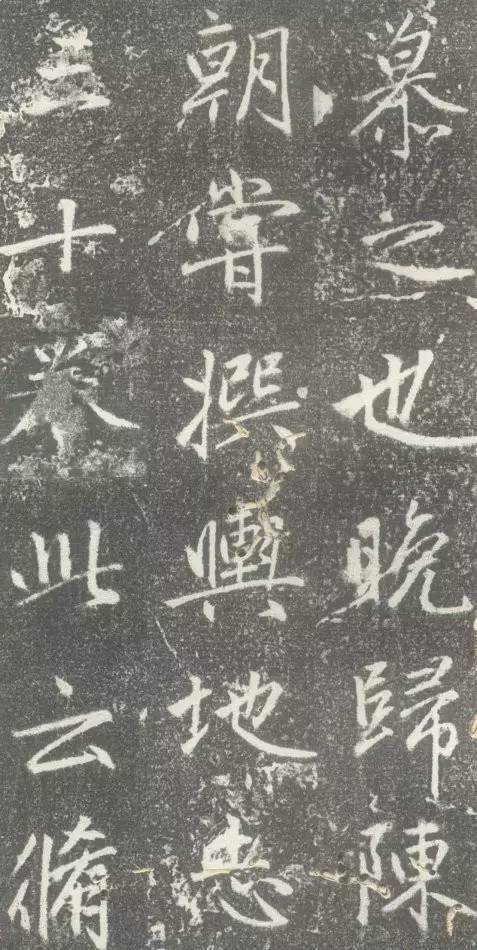 慕之也晚歸陳
朝嘗撰輿地志
三十卷此云脩